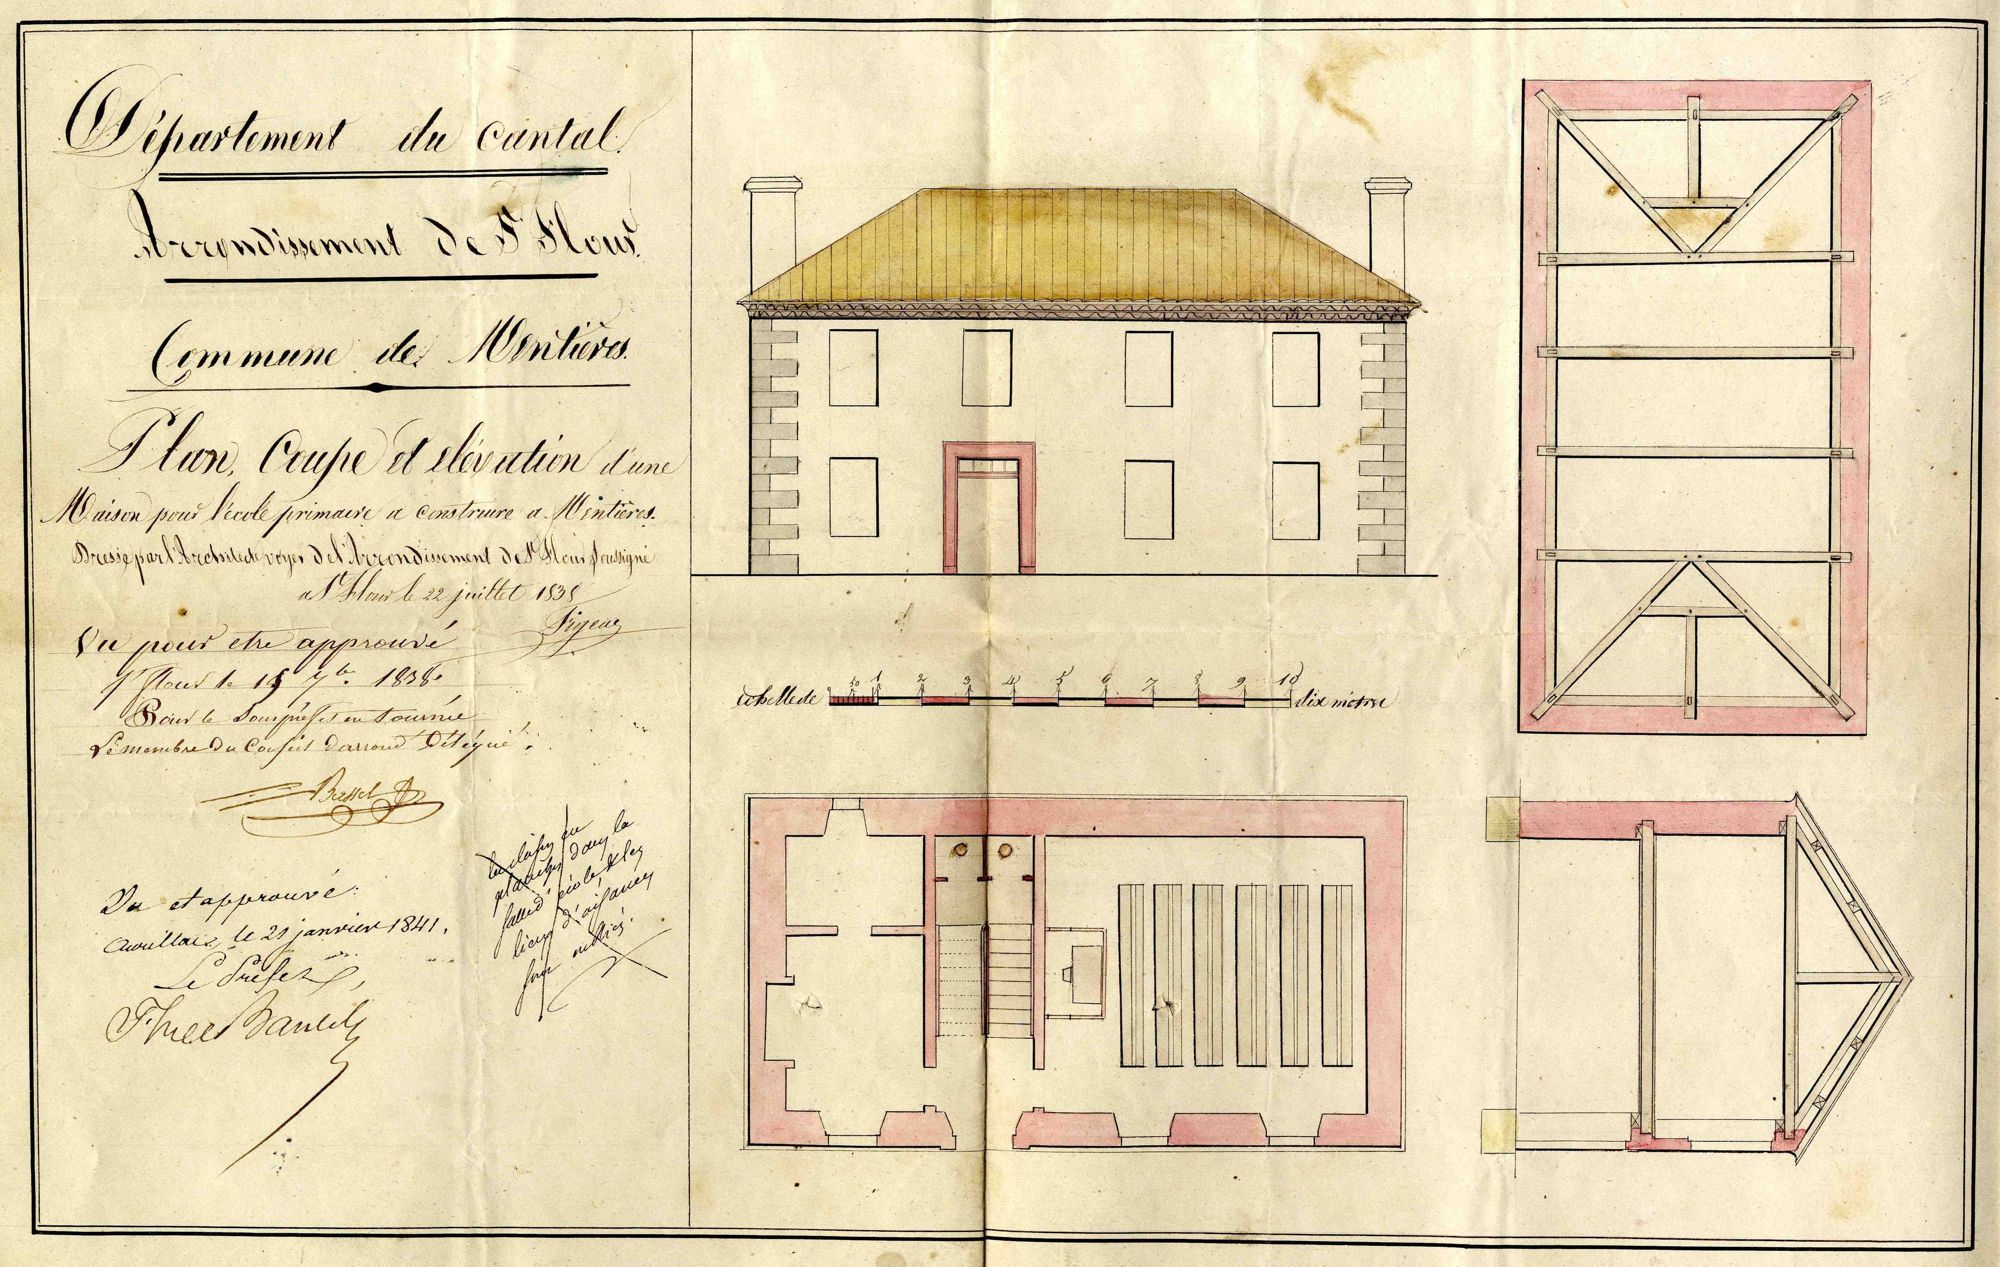 Département du cantal.
Arrondissement de St Flour.
Commune de Mentières.
Plan, Coupe et elévation d'une
Maison pour l'école primaire a construire a Mentières.
Dressé par l'Architecte voyer de l'Arrondissement de St Flour soussigné
a St Flour le 22 juillet 1838
Vu pour etre approuvé
St flour le 15 7bre 1838.
Pour le Souspréfet en tournée
Le membre du Conseil d'arrond.t Délégué.
Vu et approuvé:
aurillac, le 21 janvier 1841.
Le Préfet,
échelle de 10 1 2 3 4 5 6 7 8 9 10 dix mètres